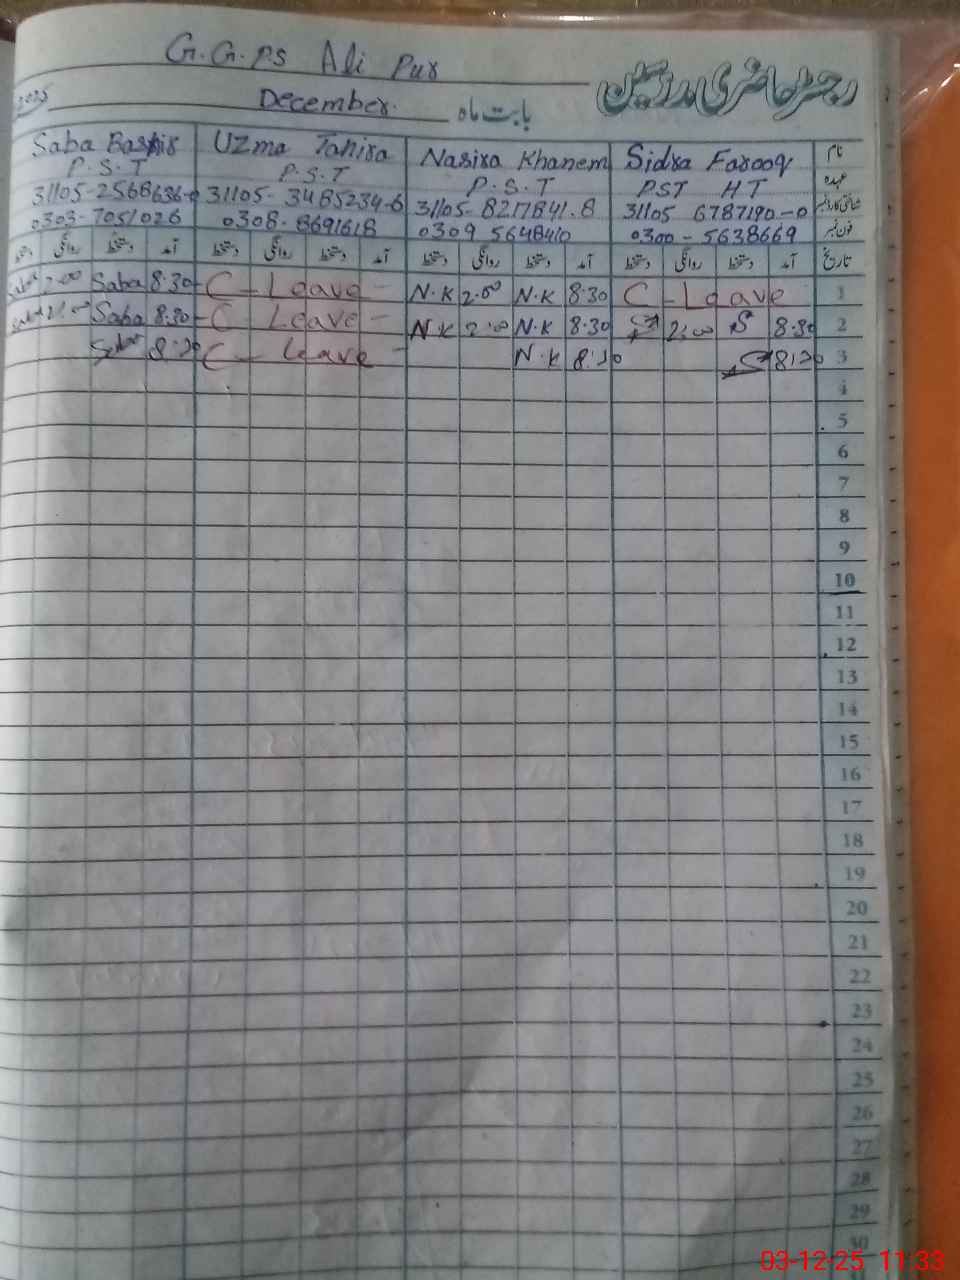 G.G.PS Ali Pur
رجسٹر حاضری مدرسین
2025 December. بابت ماہ
Saba Bashir Uzma Tahira Nasira Khanem Sidra Farooq نام
P.S.T P.S.T P.S.T PST HT عہدہ
31105-2568636-0 31105-3485234-6 31105-8217841.8 31105 6787190-0 شناختی کارڈ نمبر
0303-7051026 0308-8691618 0309 5648410 0300-5638669 فون نمبر
دستخط روانگی دستخط آمد دستخط روانگی دستخط آمد دستخط روانگی دستخط آمد دستخط روانگی دستخط آمد تاریخ
Saba 2.00 Saba 8.30 C-Leave- N.K 2.00 N.K 8.30 C-Leave 1
Saba 2.00 Saba 8.30 -C-Leave- N.K 2.00 N.K 8.30 S 2.00 S 8.30 2
Saba 8.30 C-Leave- N.K 8.30 S 8.30 3
4
5
6
7
8
9
10
11
12
13
14
15
16
17
18
19
20
21
22
23
24
25
26
27
28
29
30
03-12-25 11:33